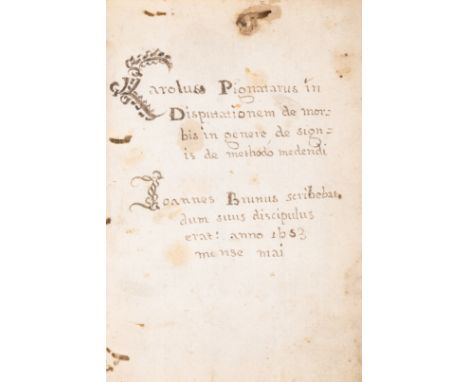 Carolus Pignatarus in
Disputationem de mor=
bis in genere de sign=
is de methodo medendi
Ioannes Brunus scribebat
dum suus discipulus
erat: anno 1653
mense mai